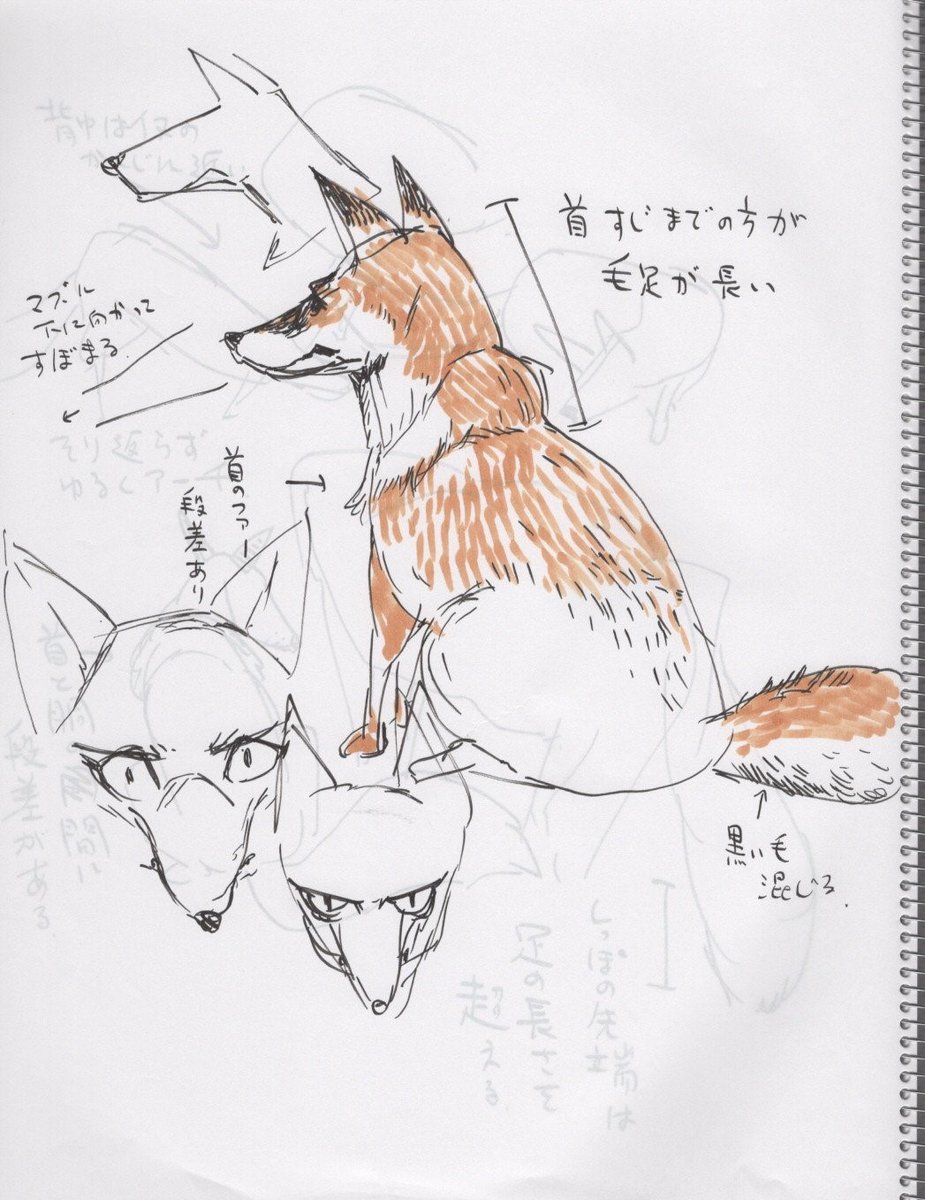 首すじまでの方が
毛足が長い
マズル
下に向かって
すぼまる.
首のファー
段差あり
黒い毛
混じる.
背中は
そり返らず
ゆるくアーチ
首と胴
段差がある
しっぽの先端は
足の長さを
超える.